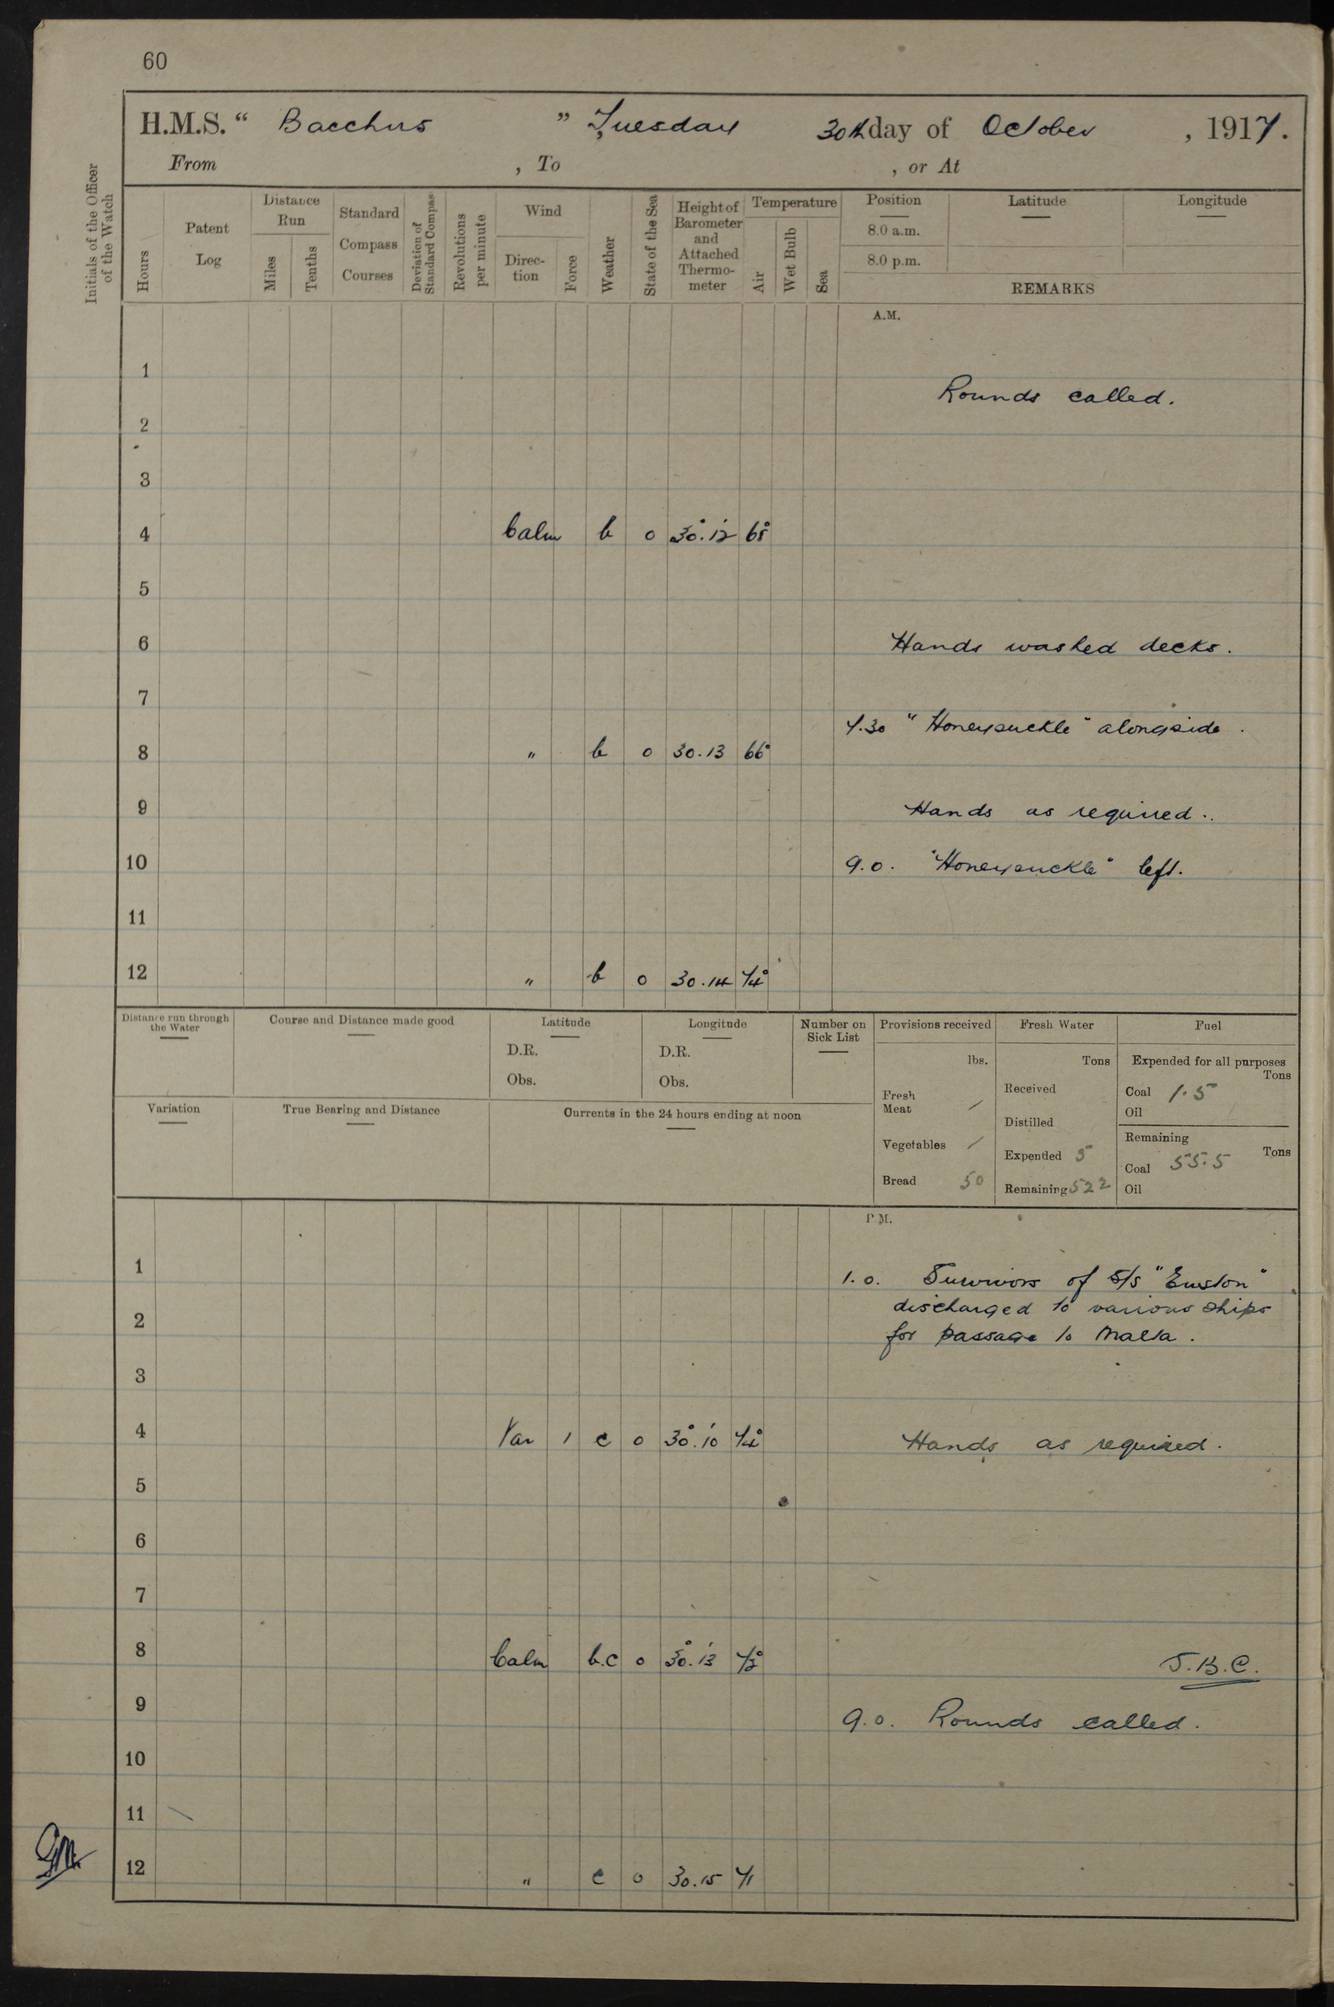 60
H.M.S. “ Bacchus ” Tuesday 30th day of October , 1917.
From , To , or At
Initials of the Officer of the Watch
Hours
Patent Log
Distance Run
Miles
Tenths
Standard Compass Courses
Deviation of Standard Compass
Revolutions per minute
Wind
Direction
Force
Weather
State of the Sea
Height of Barometer and Attached Thermometer
Temperature
Air
Wet Bulb
Sea
Position
8.0 a.m.
8.0 p.m.
Latitude
Longitude
REMARKS
A.M.
1
Rounds called.
2
3
4 Calm b o 30.12 68°
5
6 Hands washed decks.
7
7.30 "Honeysuckle" alongside.
8 " b o 30.13 66°
9 Hands as required.
10 9.0. "Honeysuckle" left.
11
12 " b o 30.14 74°
Distance run through the Water
Course and Distance made good
Latitude
D.R.
Obs.
Longitude
D.R.
Obs.
Number on Sick List
Provisions received
lbs.
Fresh Meat /
Vegetables /
Bread 50
Fresh Water
Tons
Received
Distilled
Expended 5
Remaining 522
Fuel
Expended for all purposes
Tons
Coal 1.5
Oil
Remaining
Tons
Coal 55.5
Oil
Variation
True Bearing and Distance
Currents in the 24 hours ending at noon
P.M.
1 1.0. Survivors of S/S "Euston"
discharged to various ships
2 for passage to Malta.
3
4 Var 1 c o 30.10 74° Hands as required.
5
6
7
8 Calm b.c o 30.13 72° J.B.C.
9 9.0. Rounds called.
10
11
12 " c o 30.15 71